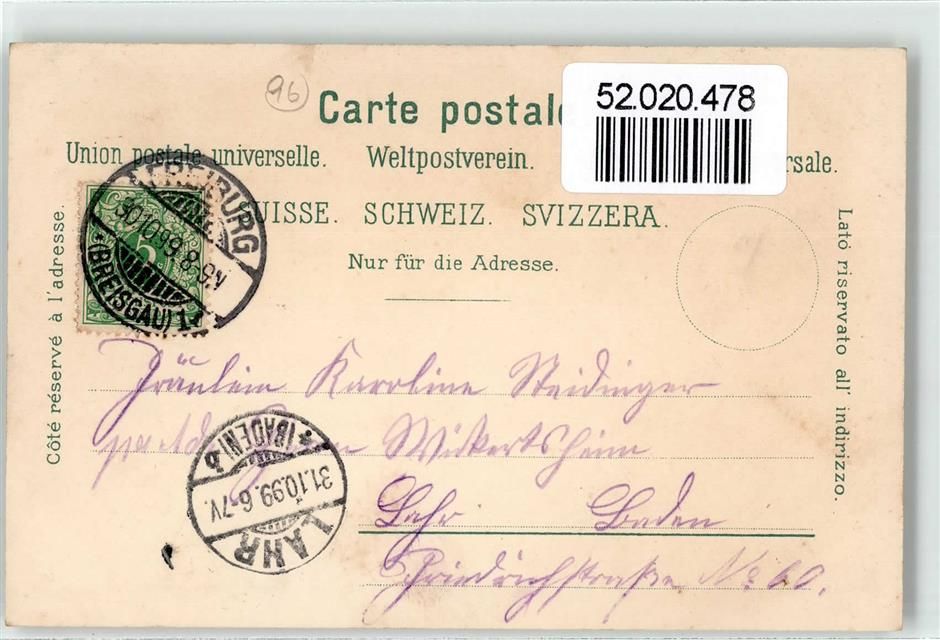 96
Carte postale
52.020.478
Union postale universelle. Weltpostverein. rsale.
UISSE. SCHWEIZ. SVIZZERA.
Nur für die Adresse.
Côté réservé à l'adresse.
Lato riservato all' indirizzo.
FREIBURG
30.10.99.8-9.V
(BREISGAU) 1
5
Fräulein Karoline Steidinger
Wickertsheim
Lahr Baden
Friedrichstraße No 60.
LAHR
31.10.99.6-7V.
* (BADEN) b